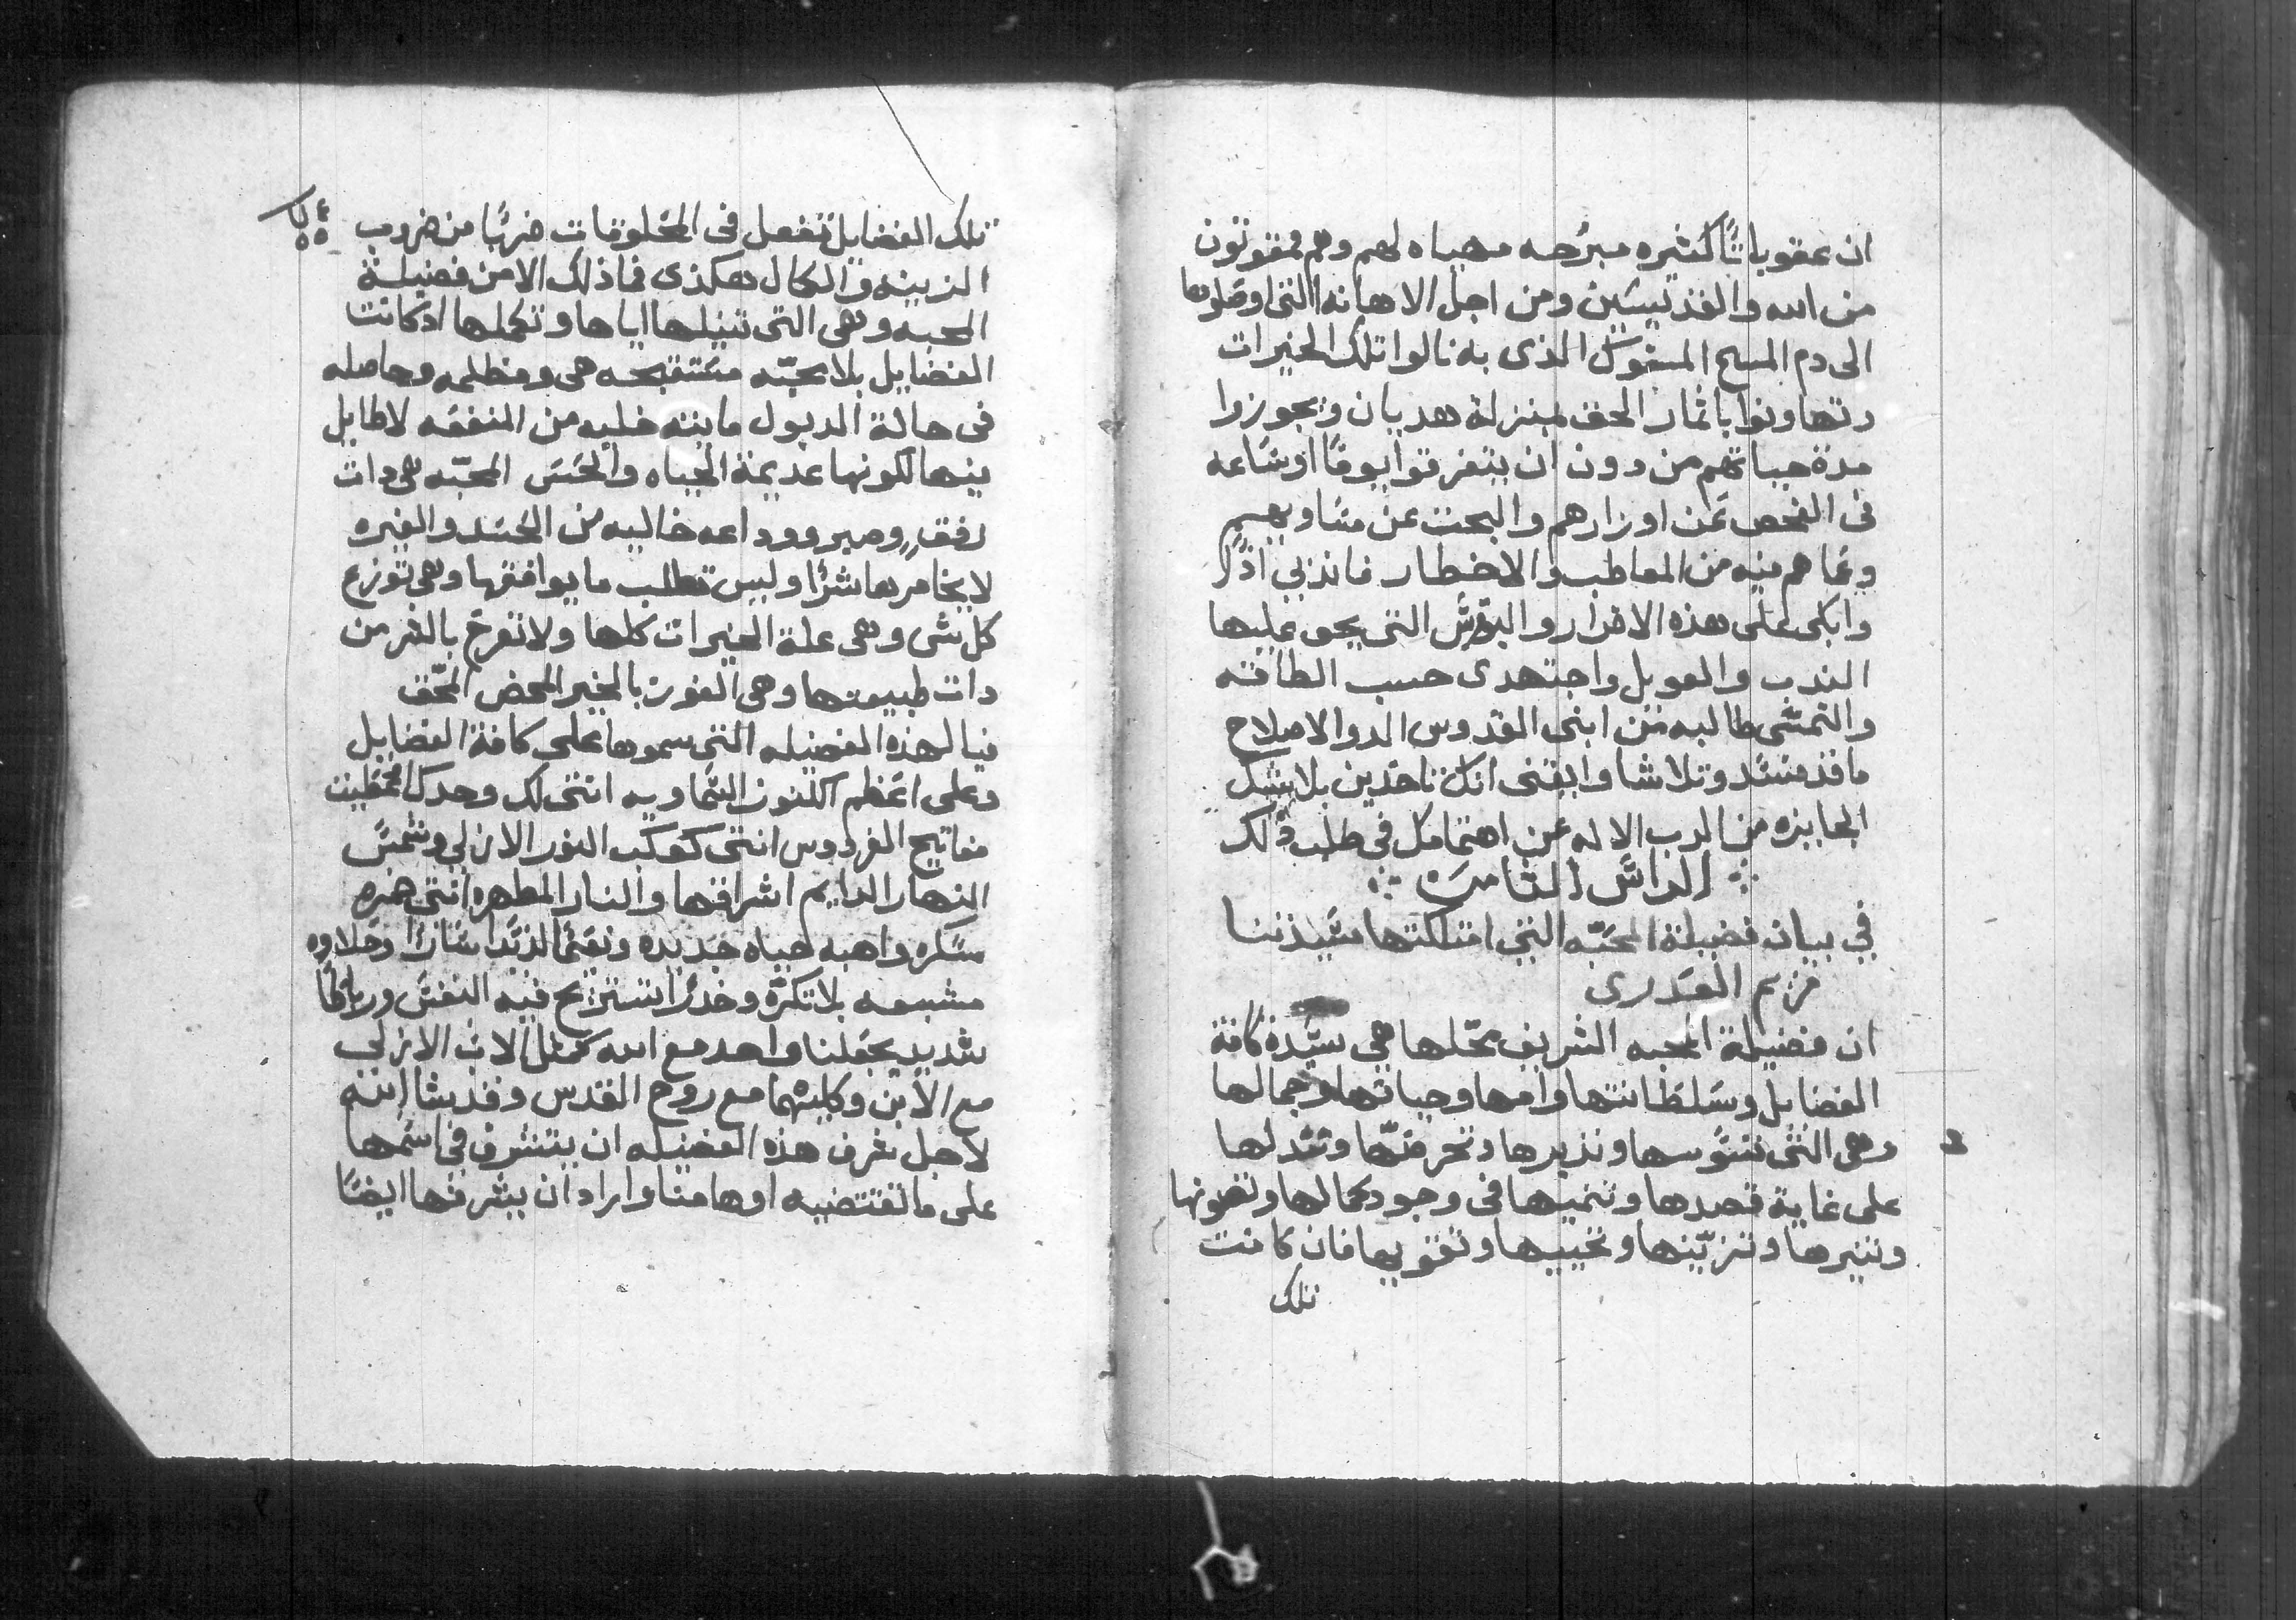 ان عقوباتًا كثيره مبرّحه مهياه لهم وهم ممقوتون
من الله والقديسين ومن اجل الاهانه التي اوصلوها
الى دم المسيح المسفوك الذى به نالوا تلك الخيرات
وتهاونوا باثمار الحق بمنزلة هديان ويجوزوا
مدة حياتهم من دون ان يتفرقوا يومًا او ساعه
فى الفحص عن اوزارهم والبحث عن مساويهم
وعما هم فيه من المعاطب والاخطار فاندبي اذًا
وابكى على هذه الاضرار والبؤس التى يحق عليها
الندب والعويل واجتهدى حسب الطاقه
والتمسى طالبه من ابنى القدوس الدوا لاصلاح
ما قد فسد وتلاشا وايقنى انك تاخدين بلا شك
الجايزه من الرب الاله عن اهتمامك فى طلب ذلك
الراس الثامن
في بيان فضيلة المحبّه التى امتلكتها سيدتنا
مريم العدرى
ان فضيلة المحبه الشريف محلها هي سيّدة كافة
الفضايل وسلطانتها وامها وحياتها وجمالها
وهى التى تسوسها وتديرها وتحركها وتعدلها
على غاية قصدها وتنميها فى وجود كمالها وتصونها
وتنيرها وتزيّنها وتحييها وتقويها فان كانت
تلك
تلك الفضايل تفعل فى المخلوقات ضربًا من ضروب
الزينه والكمال هكذى فما ذلك الا من فضيلة
المحبه وهى التى تنيلها اياها وتكملها اذ كانت
الفضايل بلا محبّه مستقبحه هى ومظلمه وحاصله
فى حالة الدبول مايته خليه من المنفعه لا طايل
فيها لكونها عديمة الحياه والحس المحبّه هى دات
رفق وصبر ووداعه خاليه من الحسد والغيره
لا يخامرها شرًا وليس تطلب ما يوافقها وهى توزع
كل شى وهى علة الخيرات كلها ولا تفرح بالشر من
دات طبيعتها وهى الفوز بالخير المحض المحق
فيا لهذه الفضيله التى سموها على كافة الفضايل
وعلى اعظم الكنوز السماويه انتى لك وحدك اعطيت
مفاتيح الفردوس انتى كوكب النور الازلي وشمس
النهار الدايم اشراقها والنار المطهره انتى خمره
مسكره واهبه حياه جديده ونعيمًا لذيدا سارًا وحلاوه
مشبعه بلا تكرّه وخدرًا تستريح فيه النفس ورباطًا
شديد يجعلنا واحد مع الله كمثل الاب الازلى
مع الابن وكليهما مع روح القدس وقد يشا انه
لاجل شرف هذه الفضيله ان يتشرف فى اسمها
على ما تقتضيه اوهامنا واراد ان يشرفها ايضًا